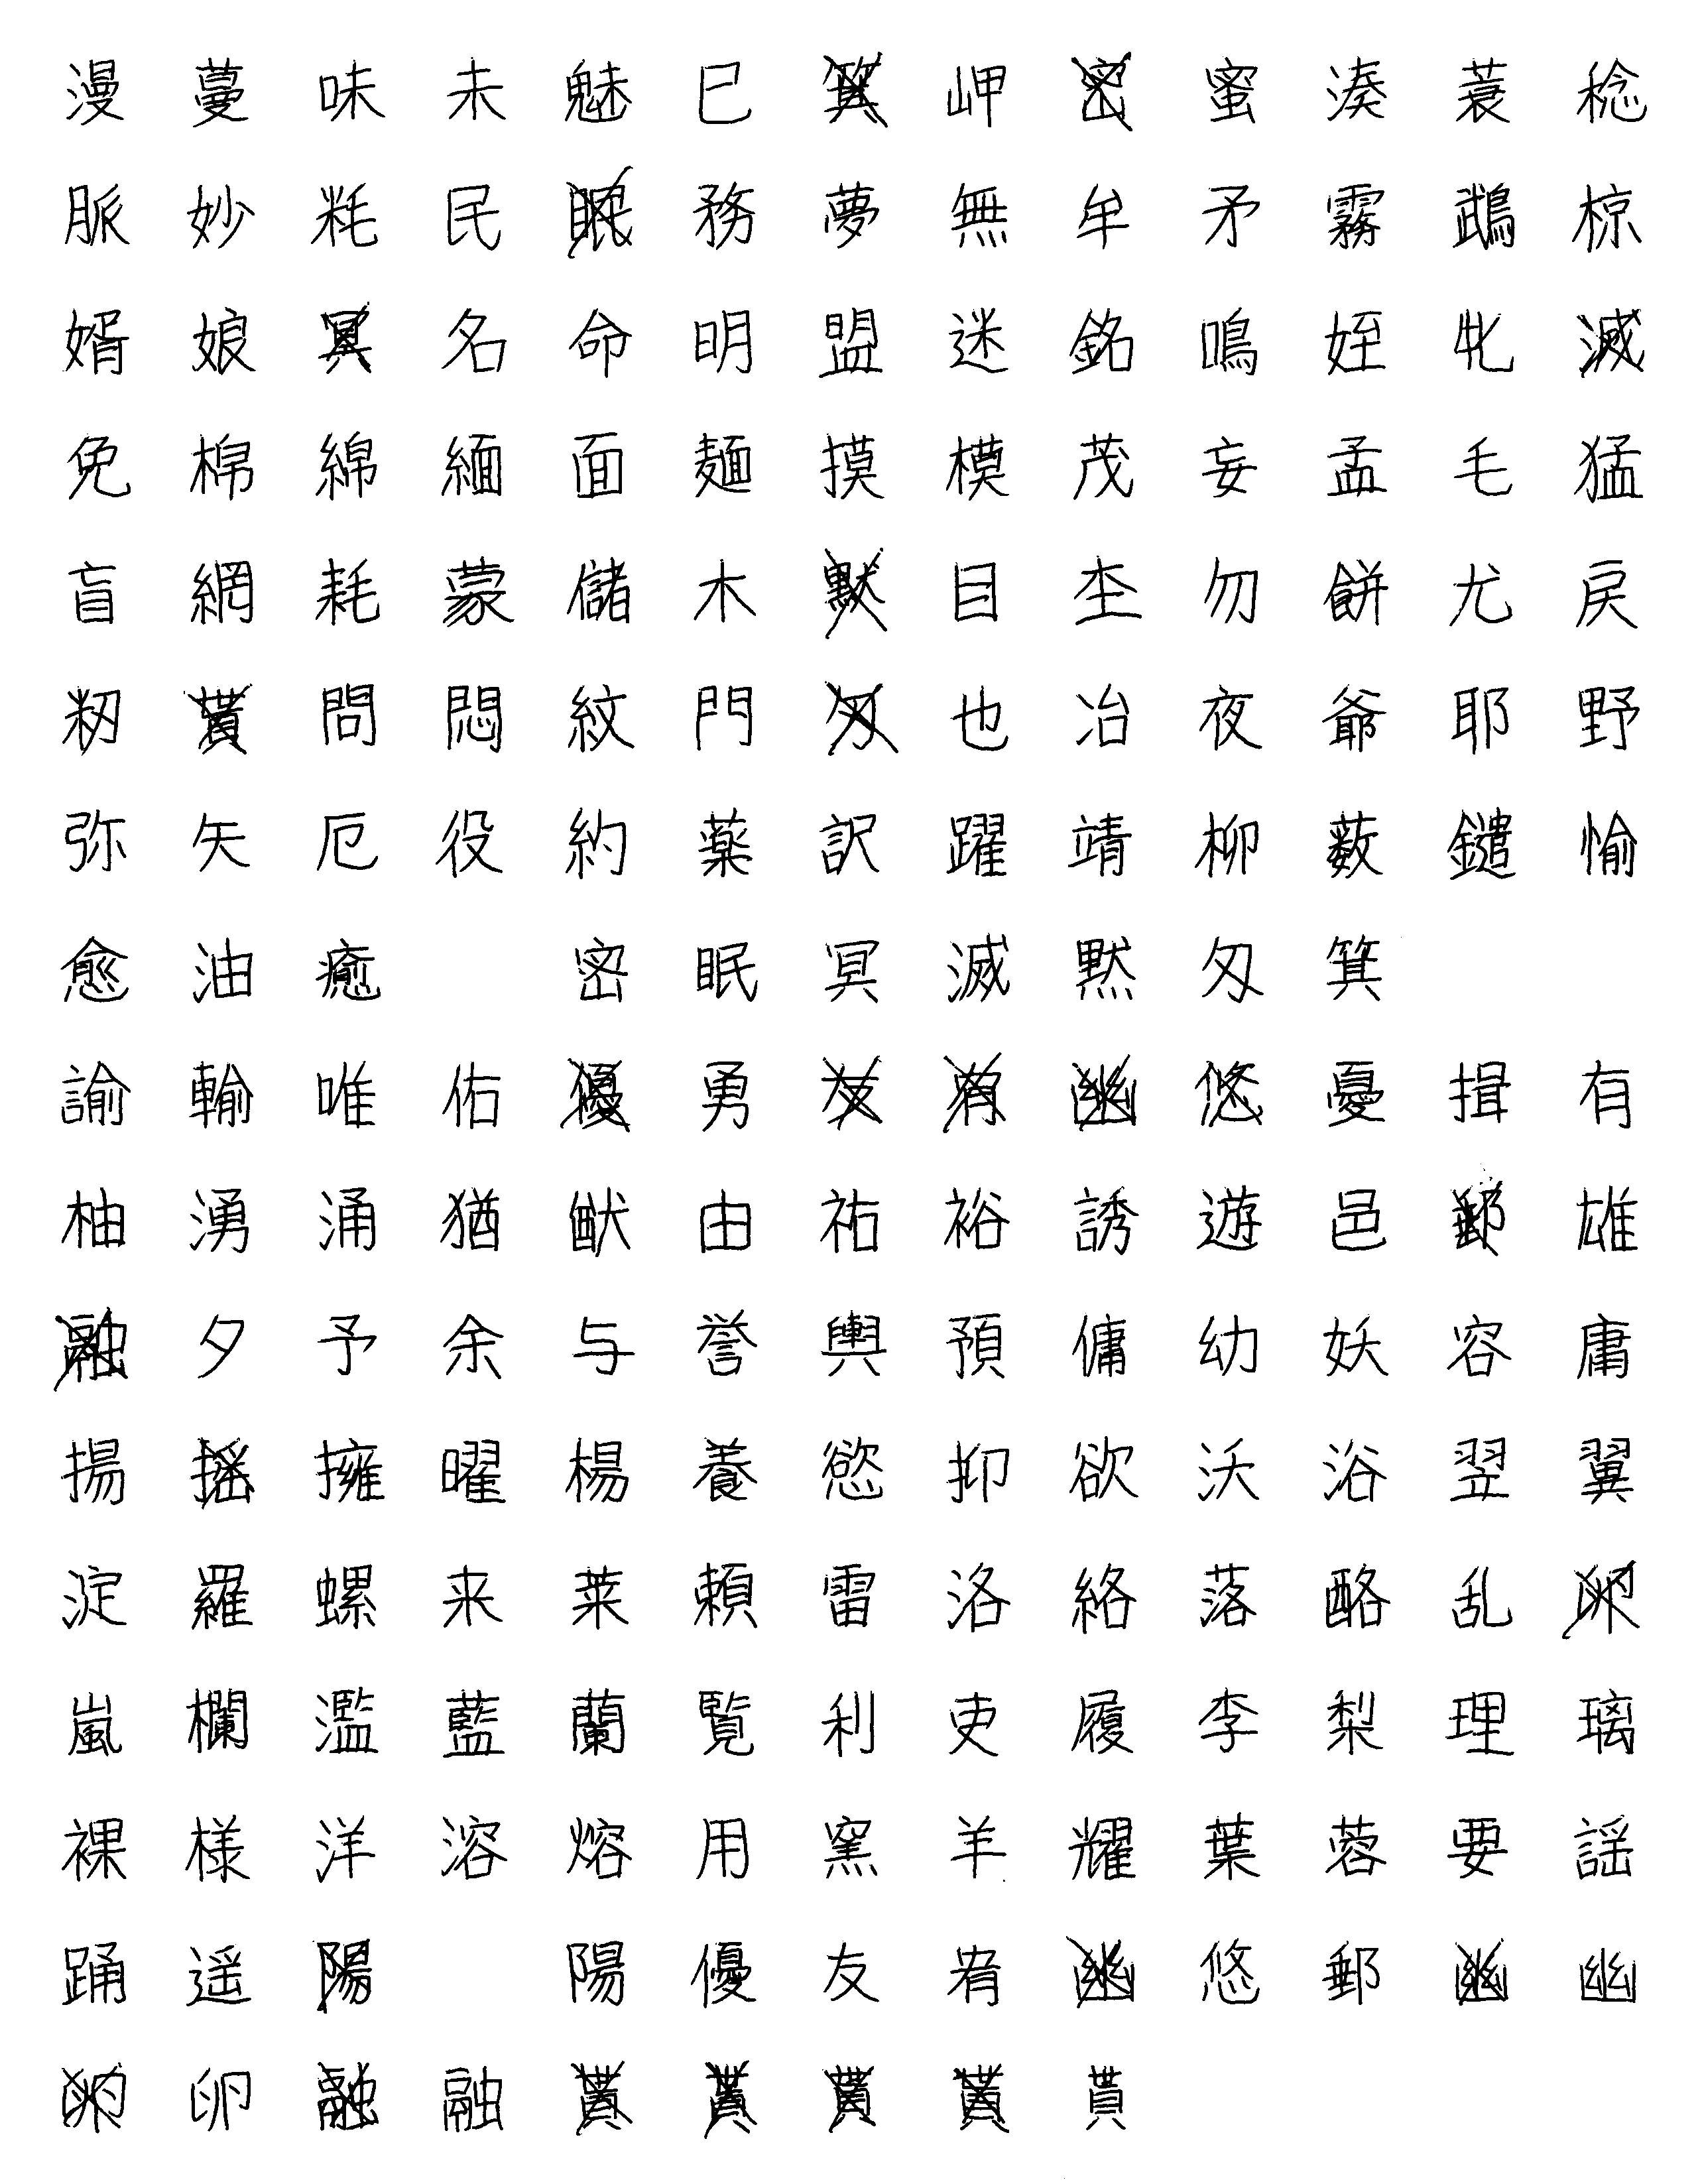 漫 蔓 味 未 魅 巳 箕 岬 密 蜜 湊 蓑 稔
脈 妙 粍 民 眠 務 夢 無 牟 矛 霧 鵡 椋
婿 娘 冥 名 命 明 盟 迷 銘 鳴 姪 牝 滅
免 棉 綿 緬 面 麺 摸 模 茂 妄 孟 毛 猛
盲 網 耗 蒙 儲 木 黙 目 杢 勿 餅 尤 戻
籾 貰 問 悶 紋 門 匁 也 冶 夜 爺 耶 野
弥 矢 厄 役 約 薬 訳 躍 靖 柳 薮 鑓 愉
愈 油 癒 密 眠 冥 滅 黙 匁 箕
諭 輸 唯 佑 優 勇 友 宥 幽 悠 憂 揖 有
柚 湧 涌 猶 猷 由 祐 裕 誘 遊 邑 郵 雄
融 夕 予 余 与 誉 輿 預 傭 幼 妖 容 庸
揚 揺 擁 曜 楊 養 慾 抑 欲 沃 浴 翌 翼
淀 羅 螺 来 莱 頼 雷 洛 絡 落 酪 乱 卵
嵐 欄 濫 藍 蘭 覧 利 吏 履 李 梨 理 璃
裸 様 洋 溶 熔 用 窯 羊 耀 葉 蓉 要 謡
踊 遥 陽 陽 優 友 宥 幽 悠 郵 幽 幽
卵 卵 融 融 貰 貰 貰 貰 貰